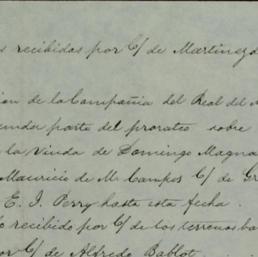 s recibidas por C/ de Martinez d
ion de la Compañia del Real del M
parte del prorateo sobre
la Viuda de Domingo Magna
Mauricio de M. Campos C/ de Gr
E. J. Perry hasta esta fecha.
o recibido por C/ de los terrenos ba
or C/ de Alfredo Bablot